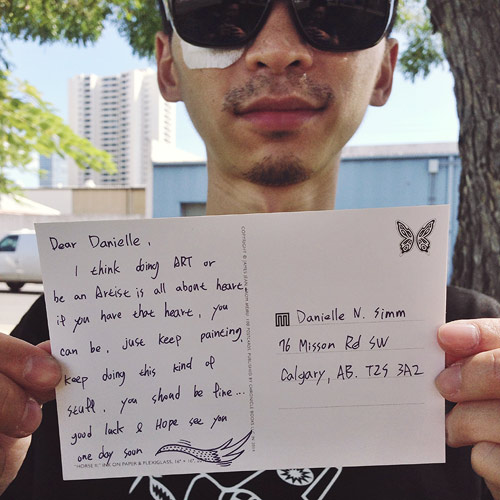 Dear Danielle,
I think doing ART or
be an Artist is all about heart
if you have that heart, you
can be, just keep painting,
keep doing this kind of
stuff, you should be fine...
good luck & Hope see you
one day soon
Danielle N. Simm
76 Misson Rd SW
Calgary, AB. T2S 3A2
INK ON PAPER & PLEXIGLASS, 16" × 16"